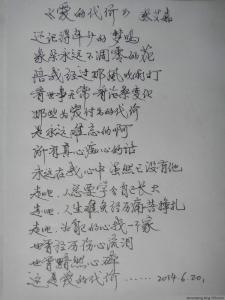 《爱的代价》 张艾嘉
还记得年少的梦吗
象朵永远不凋零的花
陪我经过那风吹雨打
看世事无常 看沧桑变化
那些为爱付出的代价
是永远难忘的啊
所有真心痴心的话
永远在我心中 虽然已没有他
走吧，人总要学会自己长大
走吧，人生难免经历痛苦挣扎
走吧，为自己的心找一个家
也曾经历伤心流泪
也曾黯然心碎
这是爱的代价……2014.6.20.